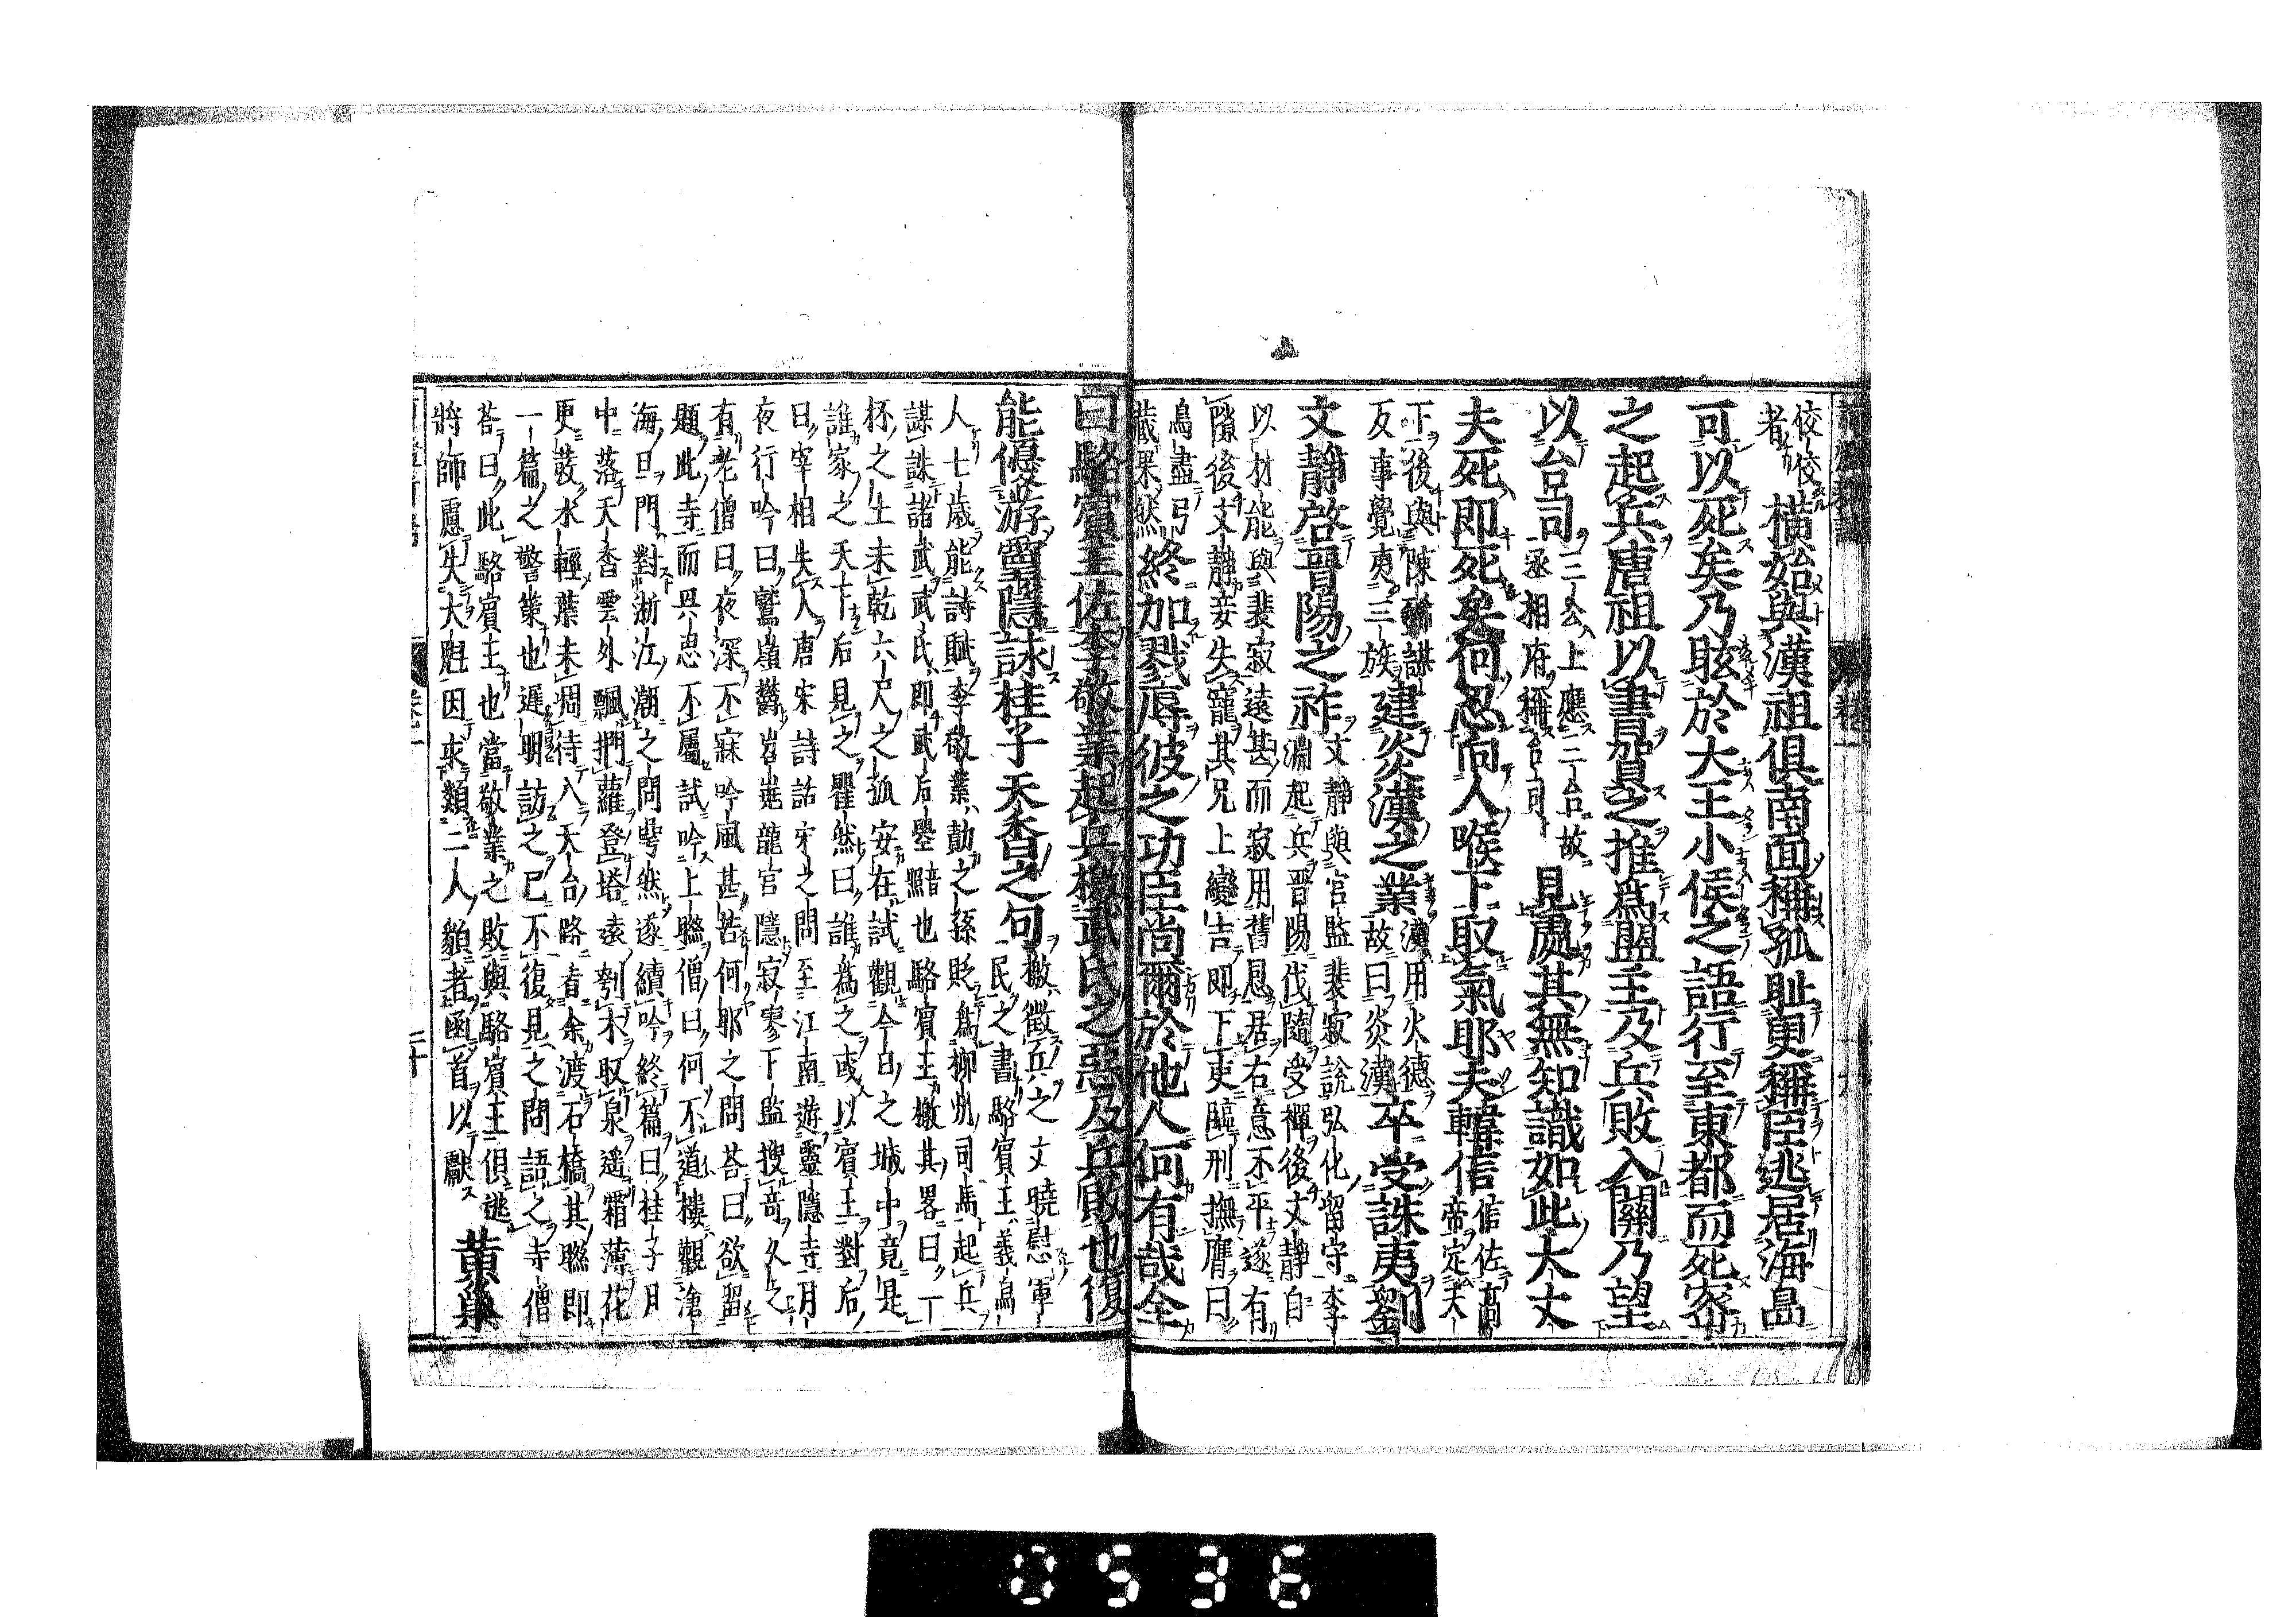 佼佼
者 橫始與漢祖俱南面稱孤耻更稱臣逃居海島
可以死矣乃眩於大王小侯之語行至東都而死密
之起兵唐祖以書賀之推爲盟主及兵敗入關乃望
以台司 三公上應三台故
丞相府稱台司 見處其無知識如此大丈
夫死即死矣何忍向人喉下取氣耶夫韓信 信佐高
帝定天
下後與陳豨謀
反事覺夷三族 建炎漢之業 漢用火德
故曰炎漢 卒受誅夷劉
文靜啓晉陽之祚 文靜與官監裴寂說弘化留守李
淵起兵晋陽伐隨受禪後文靜自
以材能與裴寂遠甚而寂用舊恩居右意不平遂有
隙後文靜妾失寵其兄上變吉即下吏臨刑撫膺曰
鳥盡弓
藏果然 終加戮辱彼之功臣尚爾於他人何有哉全
曰駱賓王佐李敬業起兵檄武氏之惡及兵敗也復
能優游靈隱詠桂子天香之句 檄徵兵之文曉慰軍
民之書駱賓王義烏
人七歲能詩賦李敬業勣之孫貶爲柳州司馬起兵
謀誅諸武武氏即武后曌音照也駱賓王檄其畧曰一
杯之土未乾六尺之孤安在試觀今日之城中竟是
誰家之天下后見之矍然曰誰爲之或以賓王對后
曰宰相失人唐宋詩話宋之問至江南游靈隱寺月
夜行吟曰鷲嶺欝岧嶤龍宮隱寂寥下監搜奇久之
有老僧曰夜深不寐吟風甚苦何耶之問荅曰欲留
題此寺而畀思不屬試吟上聯僧曰何不道樓觀滄
海日門對浙江潮之問愕然遂續吟終篇曰桂子月
中落天香雲外飄捫蘿登塔遠刳木取泉遙霜薄花
更發氷輕葉未凋待入天台路看余渡石橋其聯即
一篇之警策也遲明訪之已不復見之問語之寺僧
荅曰此駱賓王也當敬業之敗與駱賓王俱逃
將帥慮失大魁因求類二人貌者函首以獻 黃巢